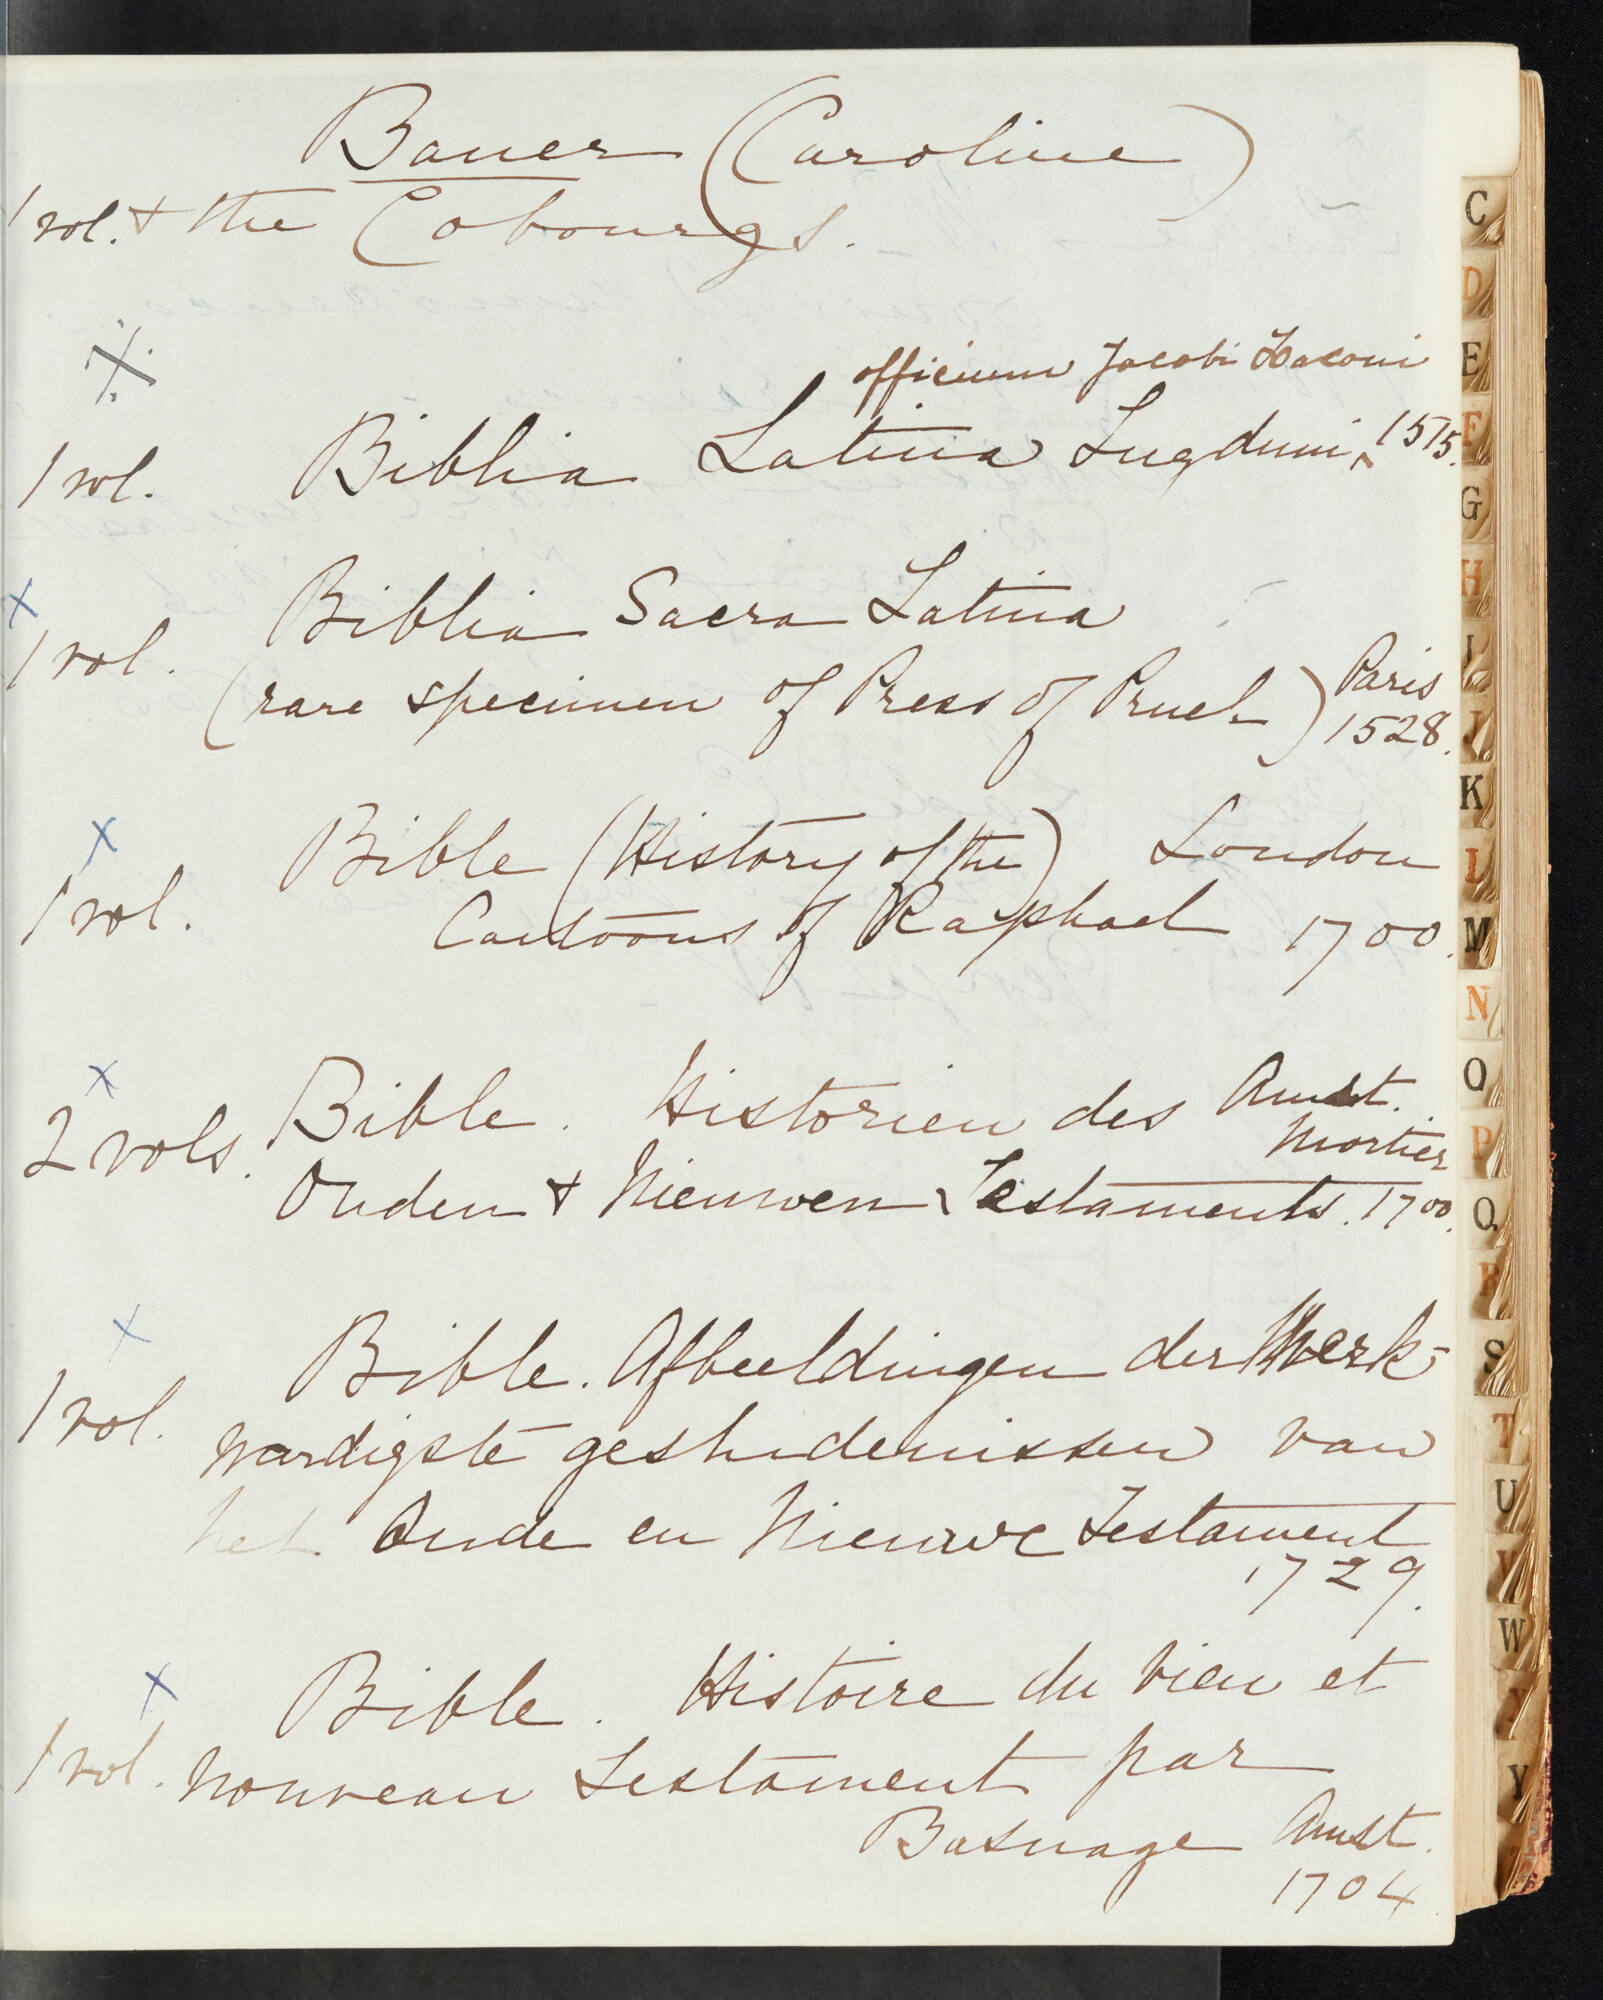 Bauer (Caroline)
1 vol. & the Cobourgs.
officium Jacobi Zaconi
1 vol. Biblia Latina Lugduni 1515.
1 vol. Biblia Sacra Latina
(rare specimen of Press of Pruel) Paris
1528.
Bible (History of the) London
1 vol. Cartoons of Raphael 1700.
Bible. Historien des Amst.
Mortier
2 vols. Ouden & Nieuwen Testaments. 1700.
Bible. Afbeeldingen der Merk-
1 vol. wardigste geshidenissen van
het Oude en Nieuwe Testament
1729.
Bible. Histoire du vieu et
1 vol. nouveau Testament par
Basnage Amst.
1704.
C
D
E
F
G
H
I
J
K
L
M
N
O
P
Q
R
S
T
U
V
W
X
Y